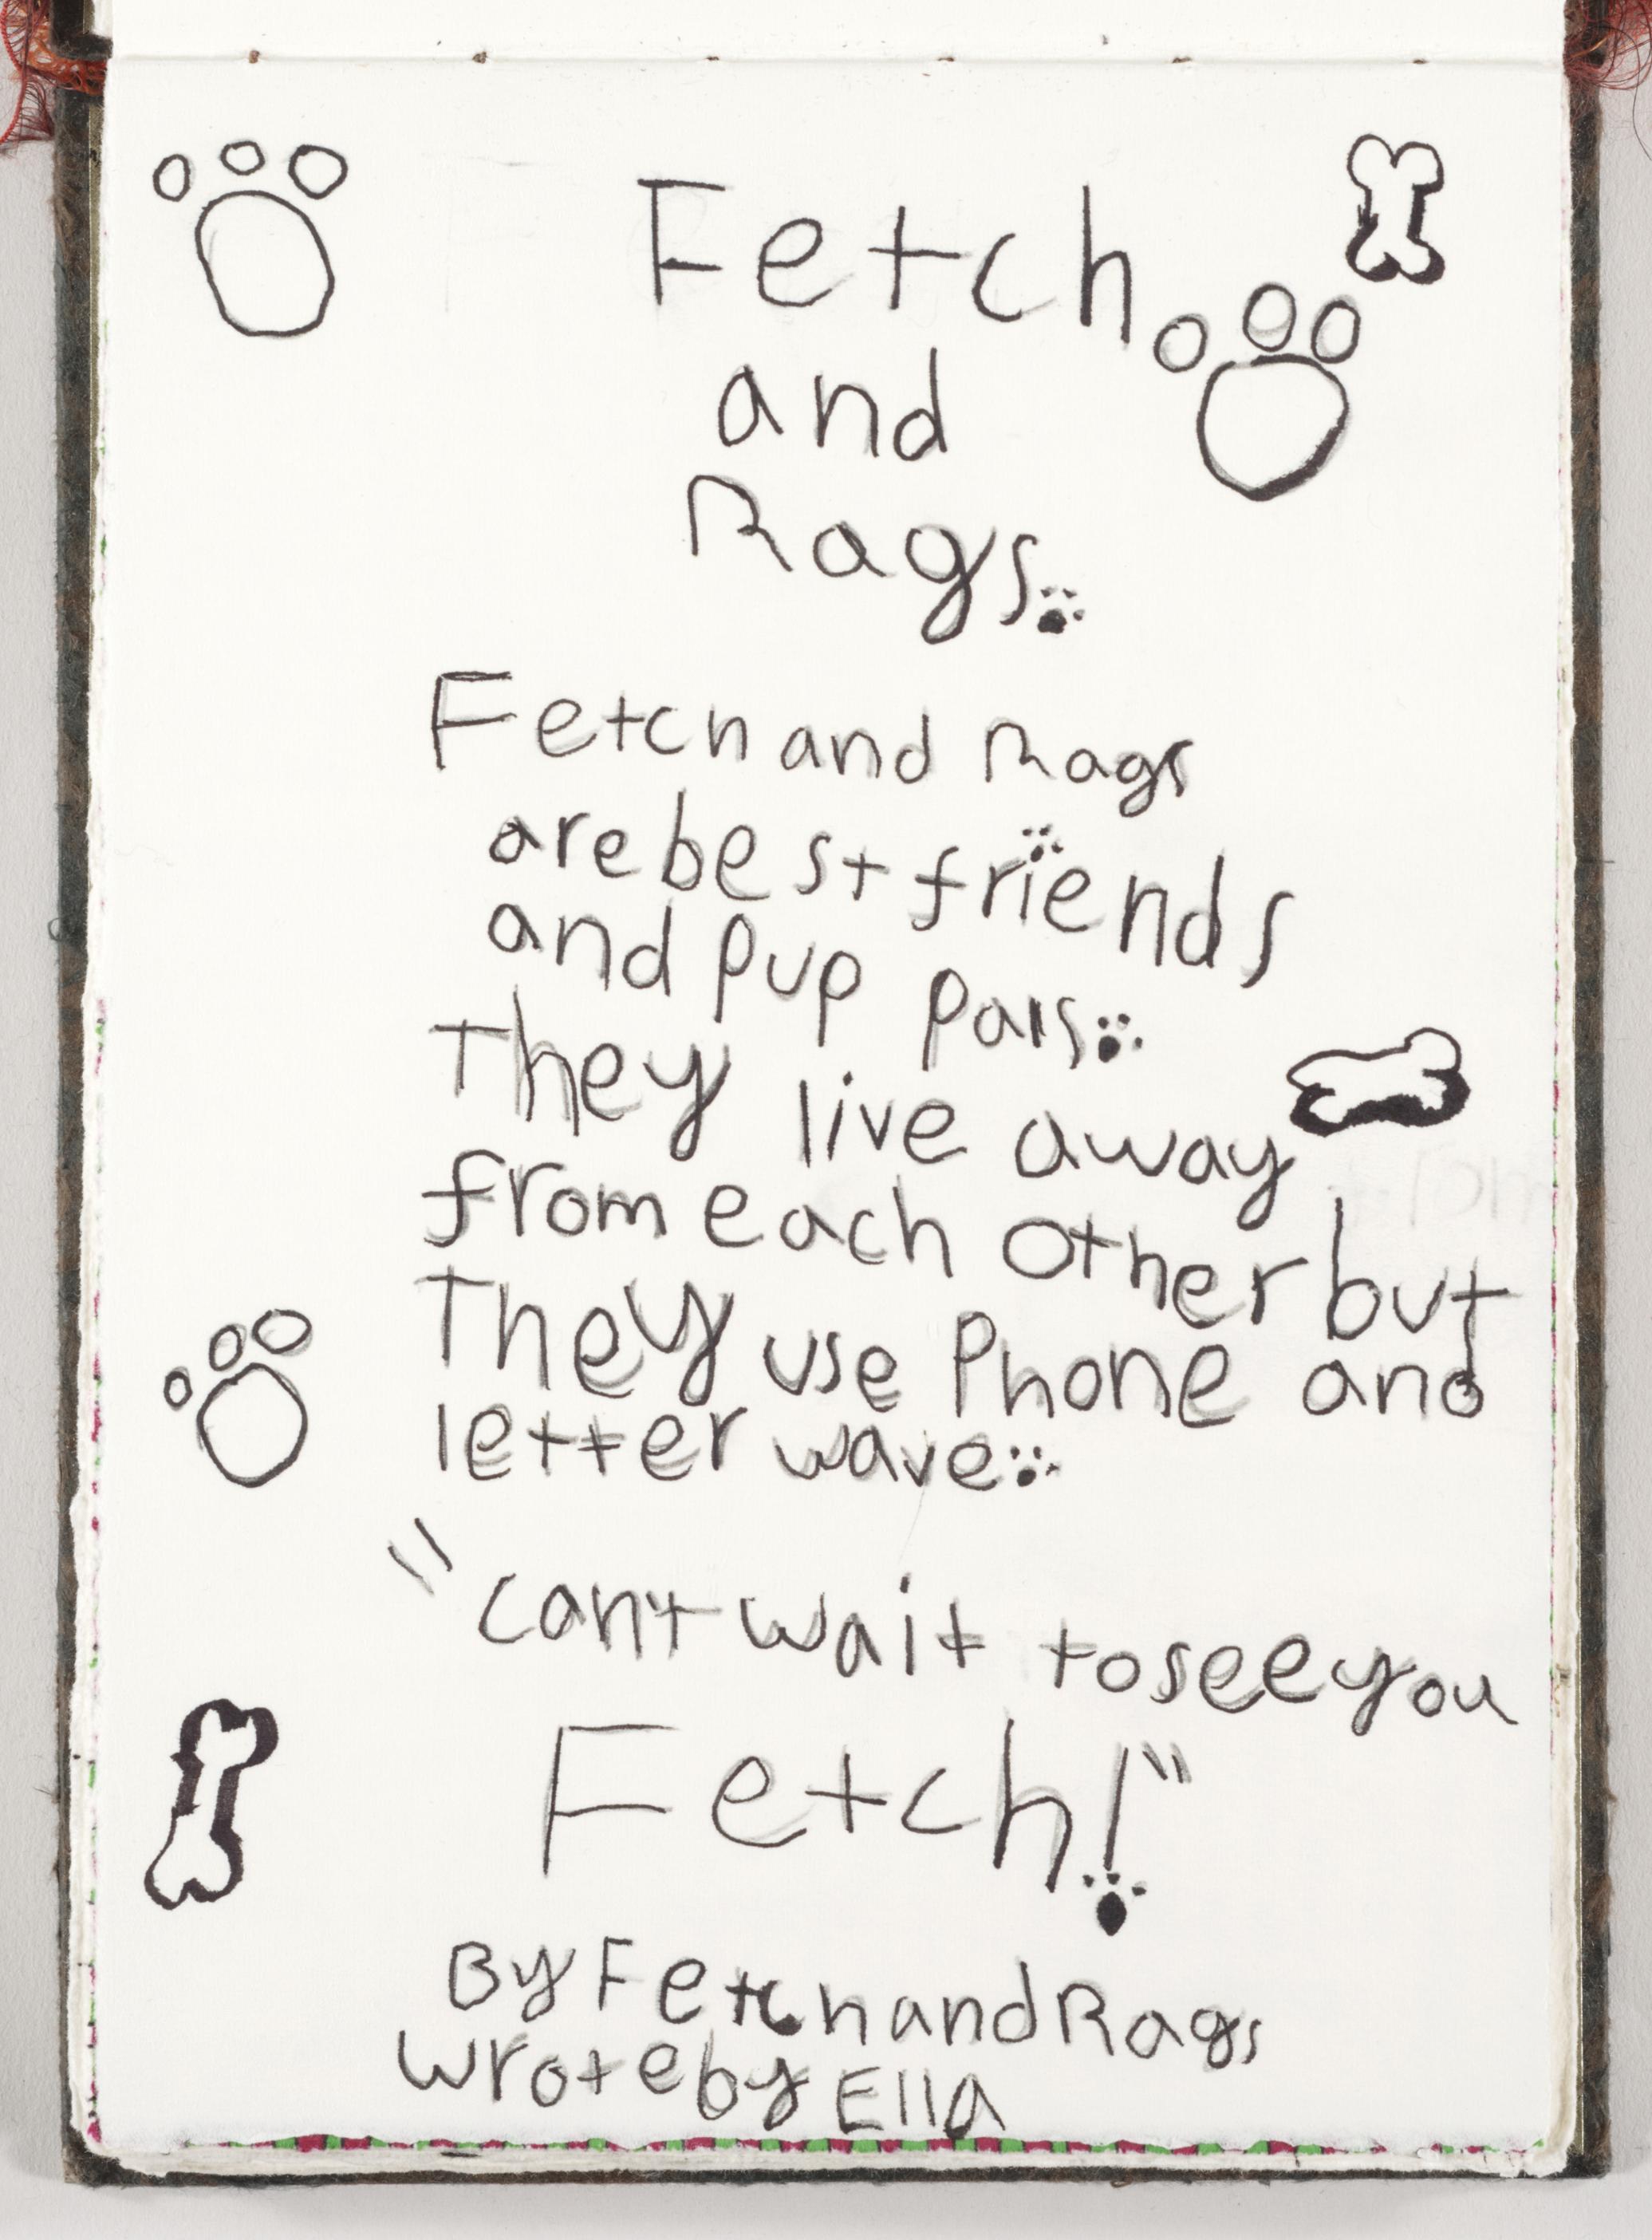 Fetch
and
Rags.
Fetch and Rags
are best friends
and pup pals.
They live away
from each other but
They use Phone and
letter wave.
"can't wait to see you
Fetch!"
By Fetch and Rags
wrote by Ella